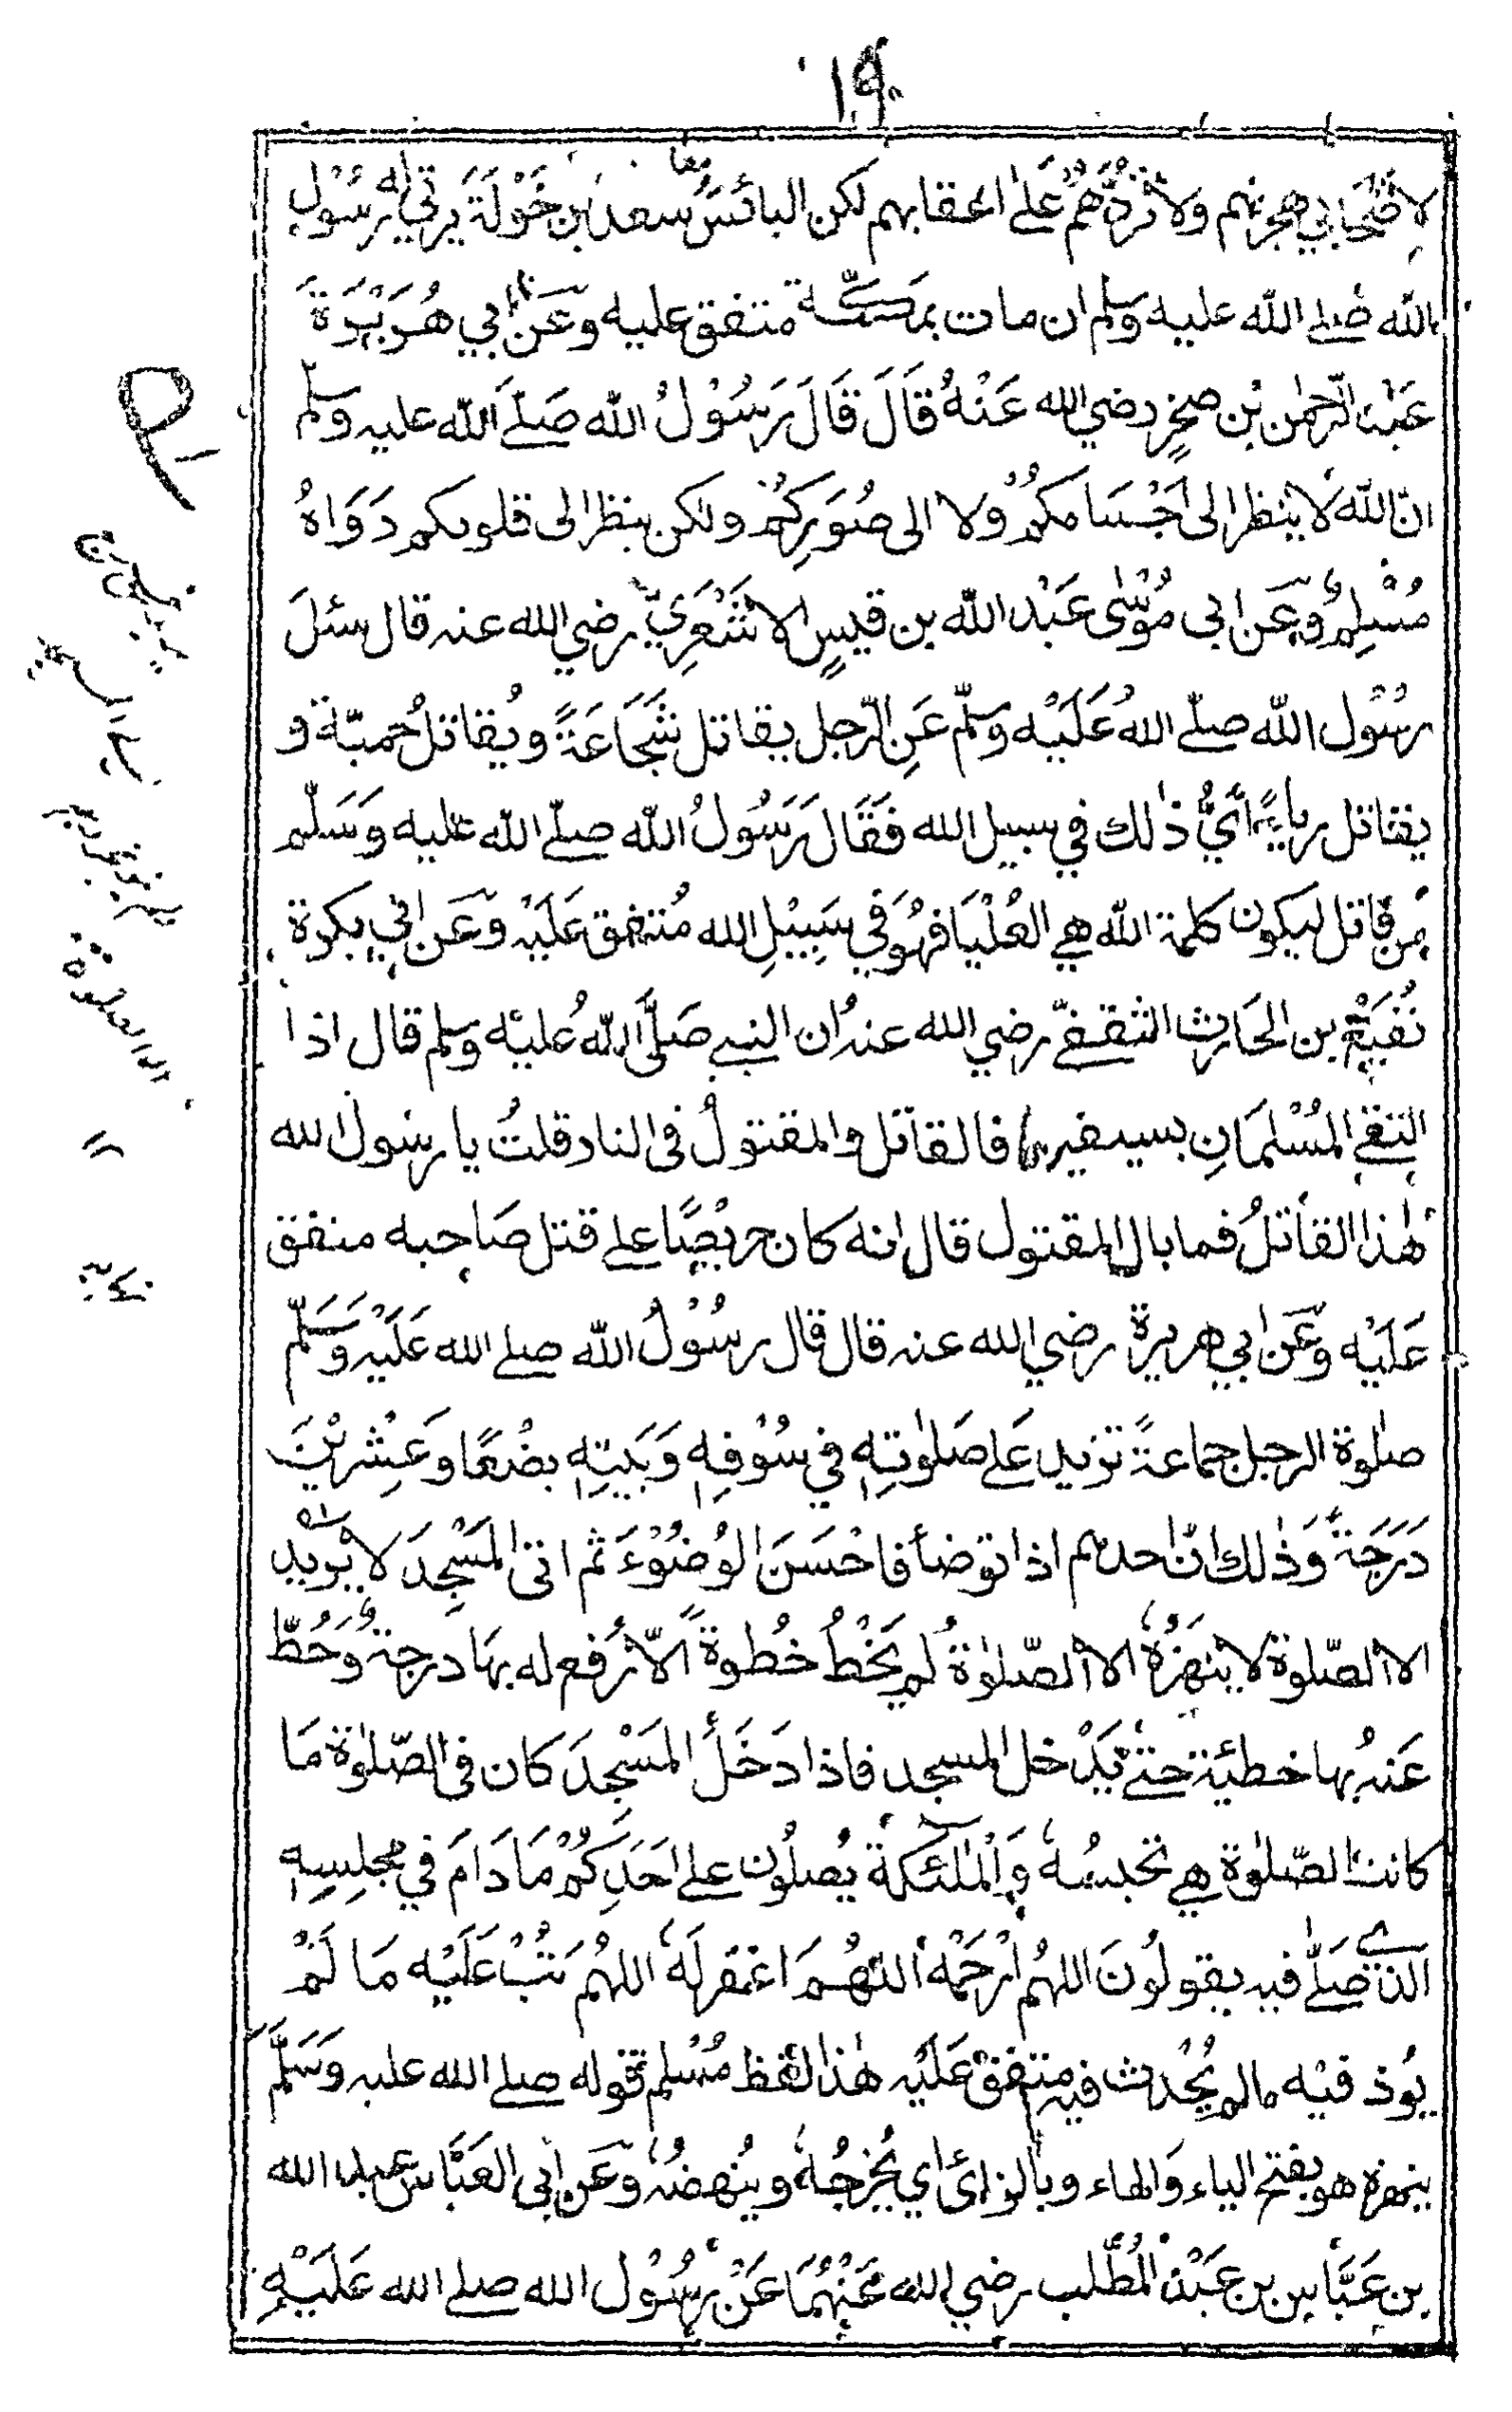 ١٩
لاصحابي هجرتهم ولا تردهم على اعقابهم لكن البائس سعد بن خولة يرثي له رسول
الله صلى الله عليه وسلم ان مات بمكة متفق عليه وعن ابي هريرة
عبد الرحمن بن صخر رضي الله عنه قال قال رسول الله صلى الله عليه وسلم
ان الله لا ينظر الى اجسامكم ولا الى صوركم ولكن ينظر الى قلوبكم رواه
مسلم وعن ابي موسى عبد الله بن قيس الاشعري رضي الله عنه قال سئل
رسول الله صلى الله عليه وسلم عن الرجل يقاتل شجاعة ويقاتل حمية و
يقاتل رياء اي ذلك في سبيل الله فقال رسول الله صلى الله عليه وسلم
من قاتل ليكون كلمة الله هي العليا فهو في سبيل الله متفق عليه وعن ابي بكرة
نفيع بن الحارث الثقفي رضي الله عنه ان النبي صلى الله عليه وسلم قال اذا
التقى المسلمان بسيفيهما فالقاتل والمقتول في النار قلت يا رسول الله
هذا القاتل فما بال المقتول قال انه كان حريصا على قتل صاحبه متفق
عليه وعن ابي هريرة رضي الله عنه قال قال رسول الله صلى الله عليه وسلم
صلوة الرجل جماعة تزيد على صلوته في سوقه وبيته بضعا وعشرين
درجة وذلك ان احدهم اذا توضأ فاحسن الوضوء ثم اتى المسجد لا يريد
الا الصلوة لا ينهزه الا الصلوة لم يخط خطوة الا رفع له بها درجة وحط
عنه بها خطيئة حتى يدخل المسجد فاذا دخل المسجد كان في الصلوة ما
كانت الصلوة هي تحبسه والملئكة يصلون على احدكم ما دام في مجلسه
الذي صلى فيه يقولون اللهم ارحمه اللهم اغفر له اللهم تب عليه ما لم
يوذ فيه مالم يحدث فيه متفق عليه هذا لفظ مسلم قوله صلى الله عليه وسلم
ينهزه هو بفتح الياء والهاء وبالزائ اي يخرجه وينهضه وعن ابي العباس عبد الله
بن عباس بن عبد المطلب رضي الله عنهما عن رسول الله صلى الله عليه